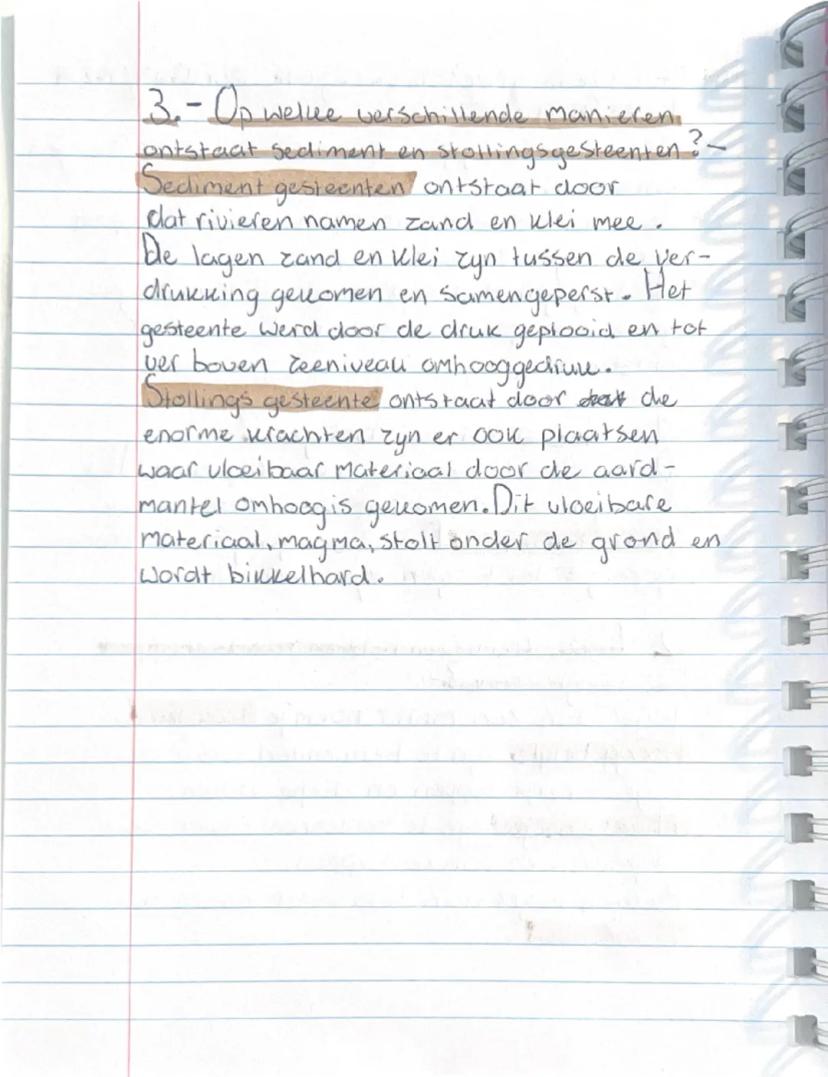 3.- Op welke verschillende manieren
ontstaat sediment en stollingsgesteenten?-
Sediment gesteenten ontstaat door
dat rivieren namen zand en klei mee.
De lagen zand en klei zyn tussen de ver-
drukking gekomen en samengeperst. Het
gesteente werd door de druk geplooid en tot
ver boven zeeniveau omhooggedruk.
Stollings gesteente ontstaat door de
enorme krachten zyn er ook plaatsen
waar vloeibaar materiaal door de aard-
mantel omhoog is gekomen. Dit vloeibare
materiaal, magma, stolt onder de grond en
wordt bikkelhard.